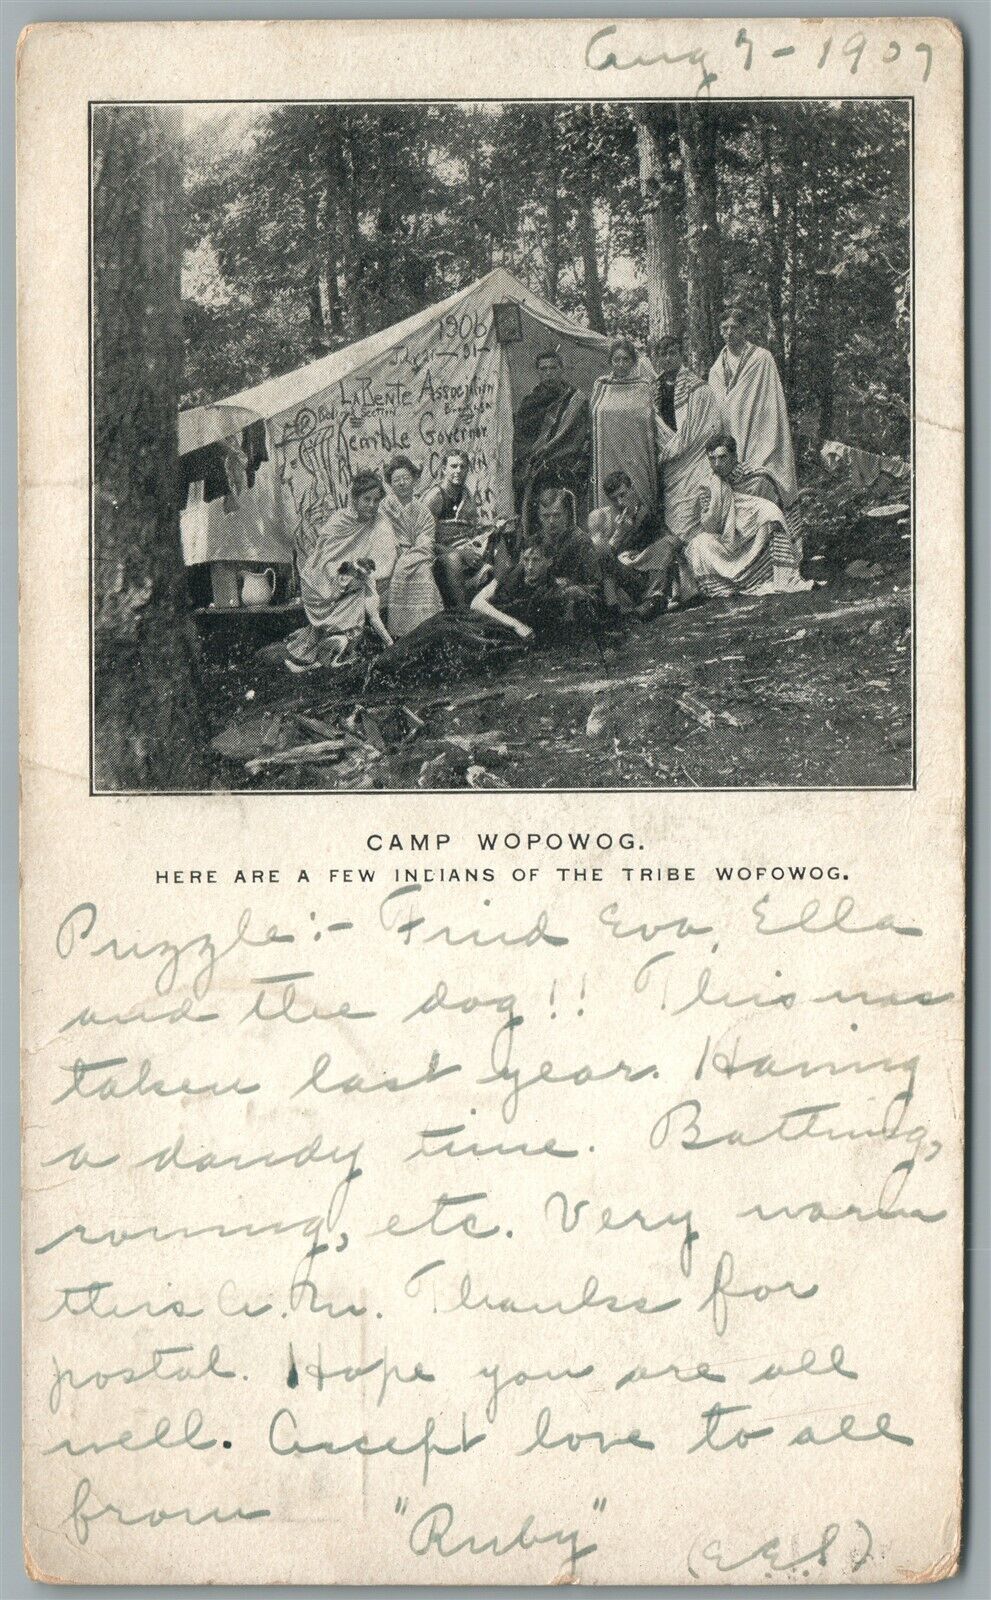 Aug 7 - 1907
1906
La Bente Association
Section
Kerrible Governor
CAMP WOPOWOG.
HERE ARE A FEW INDIANS OF THE TRIBE WOPOWOG.
Puzzle:- Find Eva, Ella
and the dog!! This was
taken last year. Having
a dandy time. Bathing,
rowing, etc. Very warm
this A.M. Thanks for
postal. Hope you are all
well. Accept love to all
from "Ruby" (E.E.S.)